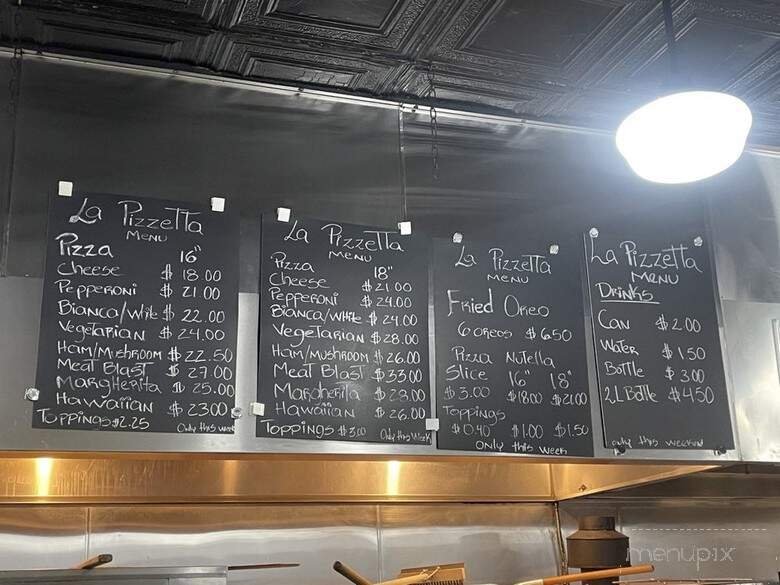 La Pizzetta
Menu
Pizza 16"
Cheese $ 18.00
Pepperoni $ 21.00
Bianca/White $ 22.00
Vegetarian $ 24.00
Ham/Mushroom $ 22.50
Meat Blast $ 27.00
Margherita $ 25.00
Hawaiian $ 23.00
Toppings $2.25 Only this week
La Pizzetta
Menu
Pizza 18"
Cheese $ 21.00
Pepperoni $ 24.00
Bianca/White $ 24.00
Vegetarian $ 28.00
Ham/Mushroom $ 26.00
Meat Blast $ 33.00
Margherita $ 28.00
Hawaiian $ 26.00
Toppings $ 3.00 Only this week
La Pizzetta
Menu
Fried Oreo
6 oreos $ 6.50
Pizza Nutella
Slice 16" 18"
$ 3.00 $18.00 $21.00
Toppings
$0.40 $1.00 $1.50
Only this week
La Pizzetta
Menu
Drinks
Can $ 2.00
Water $ 1.50
Bottle $ 3.00
2L Bottle $ 4.50
only this weekend
menupix